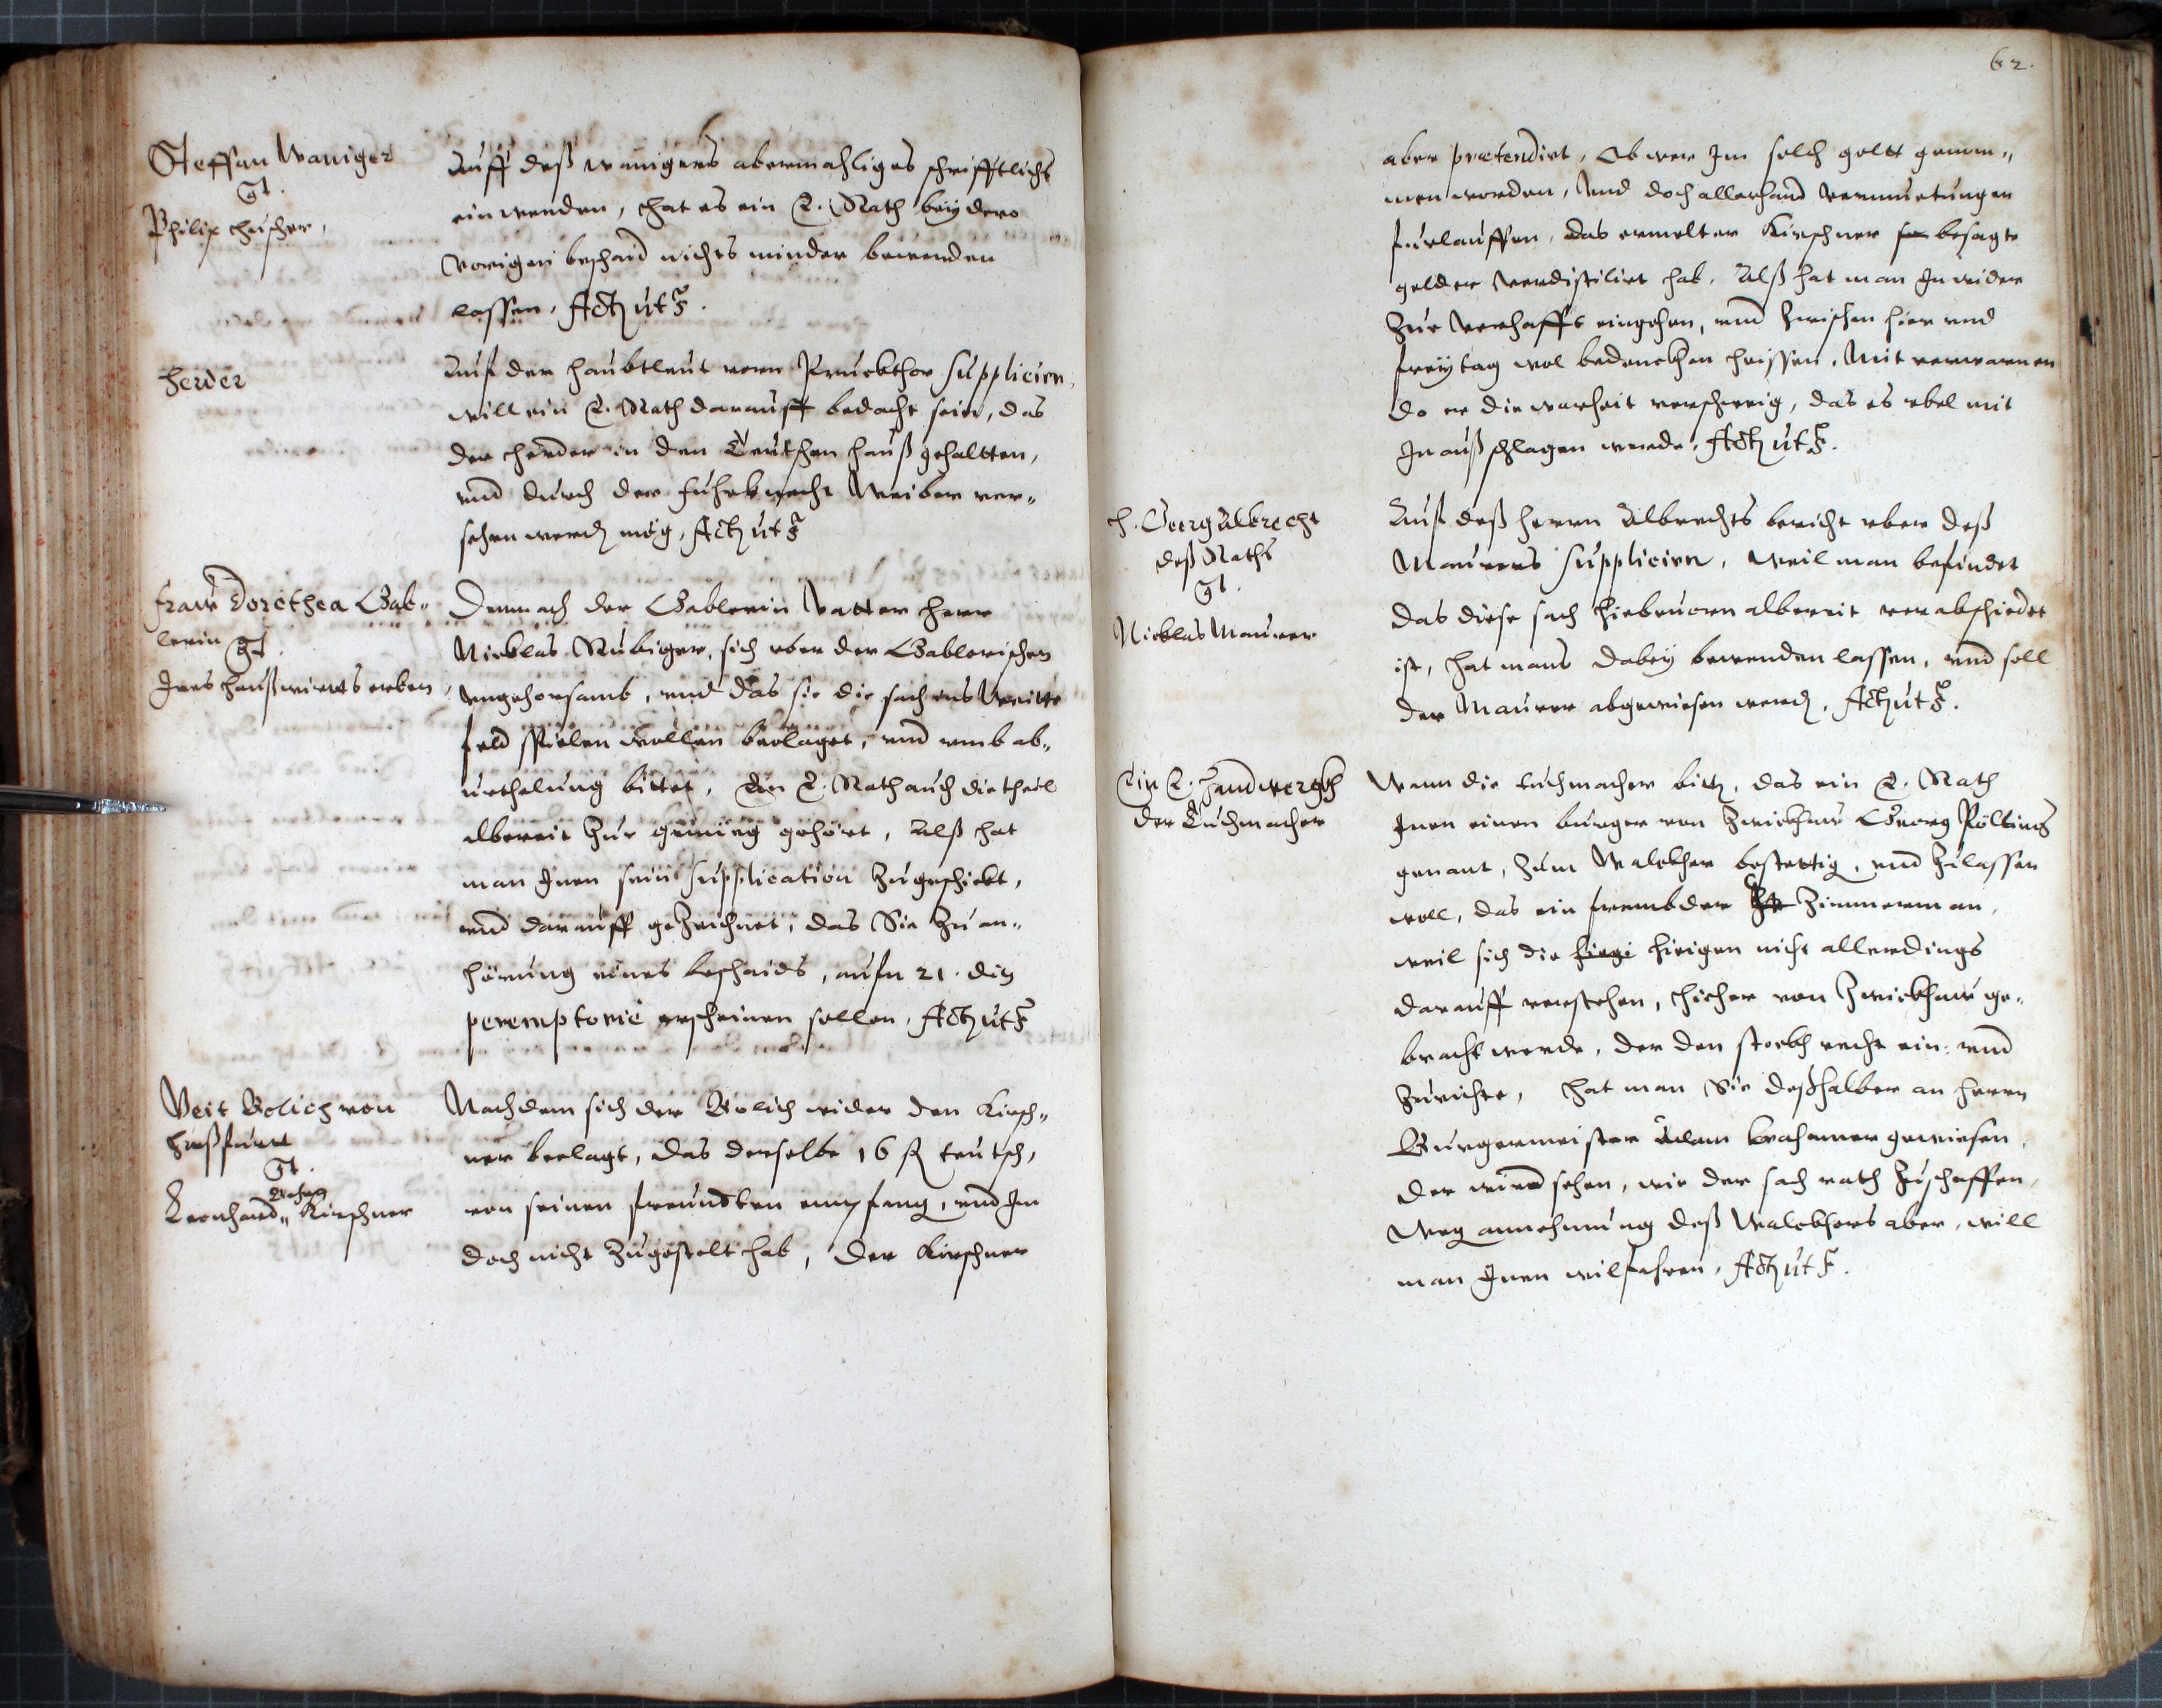 Steffan Waniger
Ct.
Philip Heuscher,
Auff deß Wanigers abermahliges schrifftlichs
einwenden, hat es ein E. Rath bey dero
vorigen beschaid nichts minder bewenden
lassen. Act ut
Herder
Auf der haubtleut vorm Pruckthor Supplicirn,
will ein E. Rath darauff bedacht sein, das
der herder in den Teutschen hauß gehaltten,
vnd durch der fuhrknecht Weiber ver-
sehen werd mög, Act ut
Fraw Dorothea Gab-
lerin Ct.
Ires haußwirts erben,
Demnach der Gablerin Vatter Herr
Nicklas Rubiger, sich vber der Gablerischen
vngehorsamb, vnd das sie die sach ins Weitte
feld spielen wollen beclaget, vnd vmb ab-
urthelung bittet, Ein E. Rath auch die theil
albereit zur genüeg gehört, Alß hat
man Inen sein Supplication zugeschickt,
vnd darauff gezeichnet, das Sie zu an-
hörung eines beschaids, aufn 21. diß
peremptoriè erscheinen sollen, Act ut
Veit Bolich von
Haßfurt
Ct.
Leonhard Kirschner
Nachdem sich der Bolich wider den Kirsch-
ner beclagt, das derselbe 16 fl teutsch,
von seinen freundten empfang, vnd Im
doch nicht zugestelt hab, Der Kirschner
62.
aber praetendirt, Ob wer Im solch geltt genom-
men worden, Vnd doch allerhand vermuetungen
fürlauffen, das ermelter Kirschner besagte
gelder verdistilirt hab, Alß hat man In wider
zur verhafft eingehen, vnd zwischen hier vnd
freytag wol bedenckhen heissen, Mit verwarnen
do er die warheit verschweig, das es vbel mit
Im außschlagen werde, Act ut
H. Georg Albrecht
deß Raths
Ct.
Nicklas Maurer
Auf deß herrn Albrechts bericht vber deß
Maurers Supplicirn, weil man befindet
das diese sach hiebeuorn albereit verabschiedet
ist, hat mans dabey bewenden lassen, vnd soll
der Maurer abgewiesen werd, Act ut
Ein E. Handwergkh
der Tuchmacher
Wann die tuchmacher bitt, das ein E. Rath
Inen einen burger von Zwickhaw Georg Pölting
genant, zum Walckher bestettig, vnd zulassen
woll, das ein frembder Zimmerman,
weil sich die hiesi hiesigen nicht allerdings
darauff verstehen, hieher von Zwickhaw ge-
bracht werde, der den stockh recht ein: vnd
zurichte, Hat man Sie deßhalber an herrn
Burgermeister Adam Crahamer gewiesen,
der wird sehen, wie der sach rath zuschaffen,
Weg annehmung deß Walckhers aber, will
man Inen wilfahren, Act ut